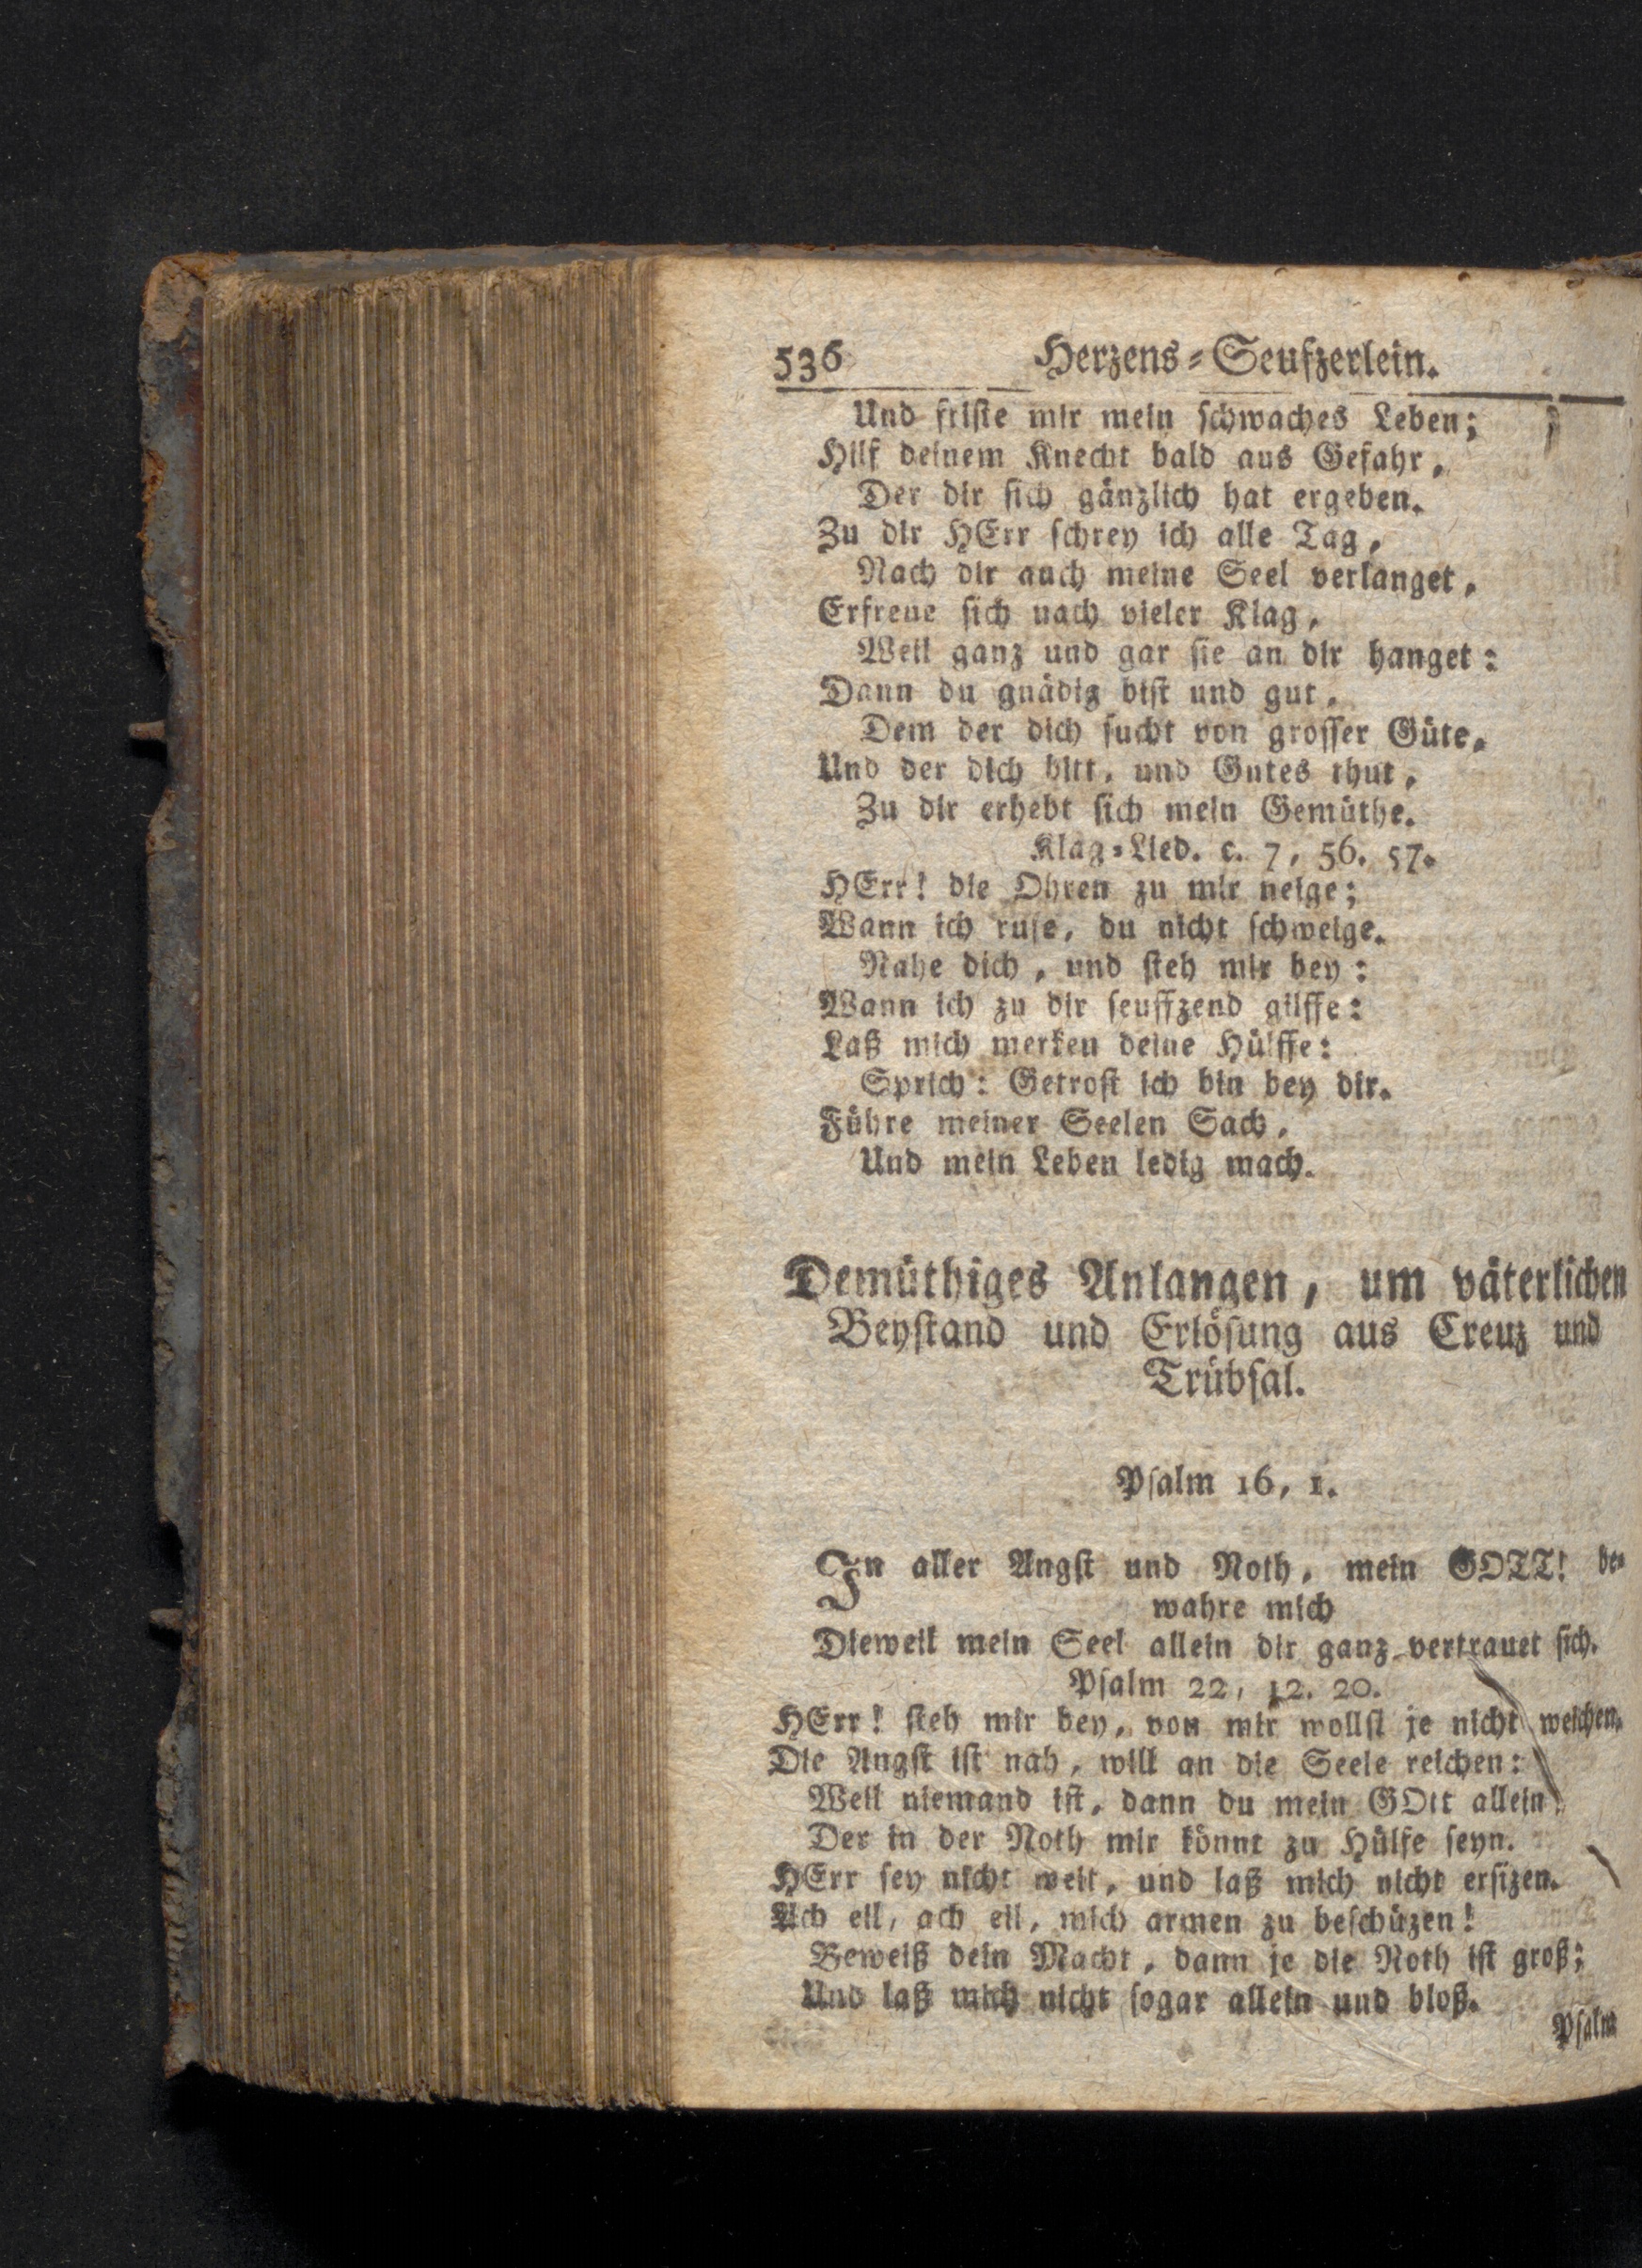 536 Herzens-Seufzerlein.
Und friste mir mein schwaches Leben;
Hilf deinem Knecht bald aus Gefahr,
Der dir sich gänzlich hat ergeben.
Zu dir HErr schrey ich alle Tag,
Nach dir auch meine Seel verlanget,
Erfreue sich nach vieler Klag,
Weil ganz und gar sie an dir hanget:
Dann du gnädig bist und gut,
Dem der dich sucht von grosser Güte,
Und der dich bitt, und Gutes thut,
Zu dir erhebt sich mein Gemüthe.
Klag-Lied. c. 7, 56. 57.
HErr! die Ohren zu mir neige;
Wann ich rufe, du nicht schweige.
Nahe dich, und steh mir bey:
Wann ich zu dir seuffzend gilffe:
Laß mich merken deine Hülffe:
Sprich: Getrost ich bin bey dir.
Führe meiner Seelen Sach,
Und mein Leben ledig mach.
Demüthiges Anlangen, um väterlichen
Beystand und Erlösung aus Creuz und
Trübsal.
Psalm 16, 1.
In aller Angst und Noth, mein GOTT! be-
wahre mich
Dieweil mein Seel allein dir ganz vertrauet sich.
Psalm 22, 12. 20.
HErr! steh mir bey, von mir wollst je nicht weichen,
Die Angst ist nah, will an die Seele reichen:
Weil niemand ist, dann du mein GOtt allein,
Der in der Noth mir könnt zu Hülfe seyn.
HErr sey nicht weit, und laß mich nicht ersizen.
Ach eil, ach eil, mich armen zu beschüzen!
Beweiß dein Macht, dann je die Noth ist groß;
Und laß mich nicht sogar allein und bloß.
Psalm